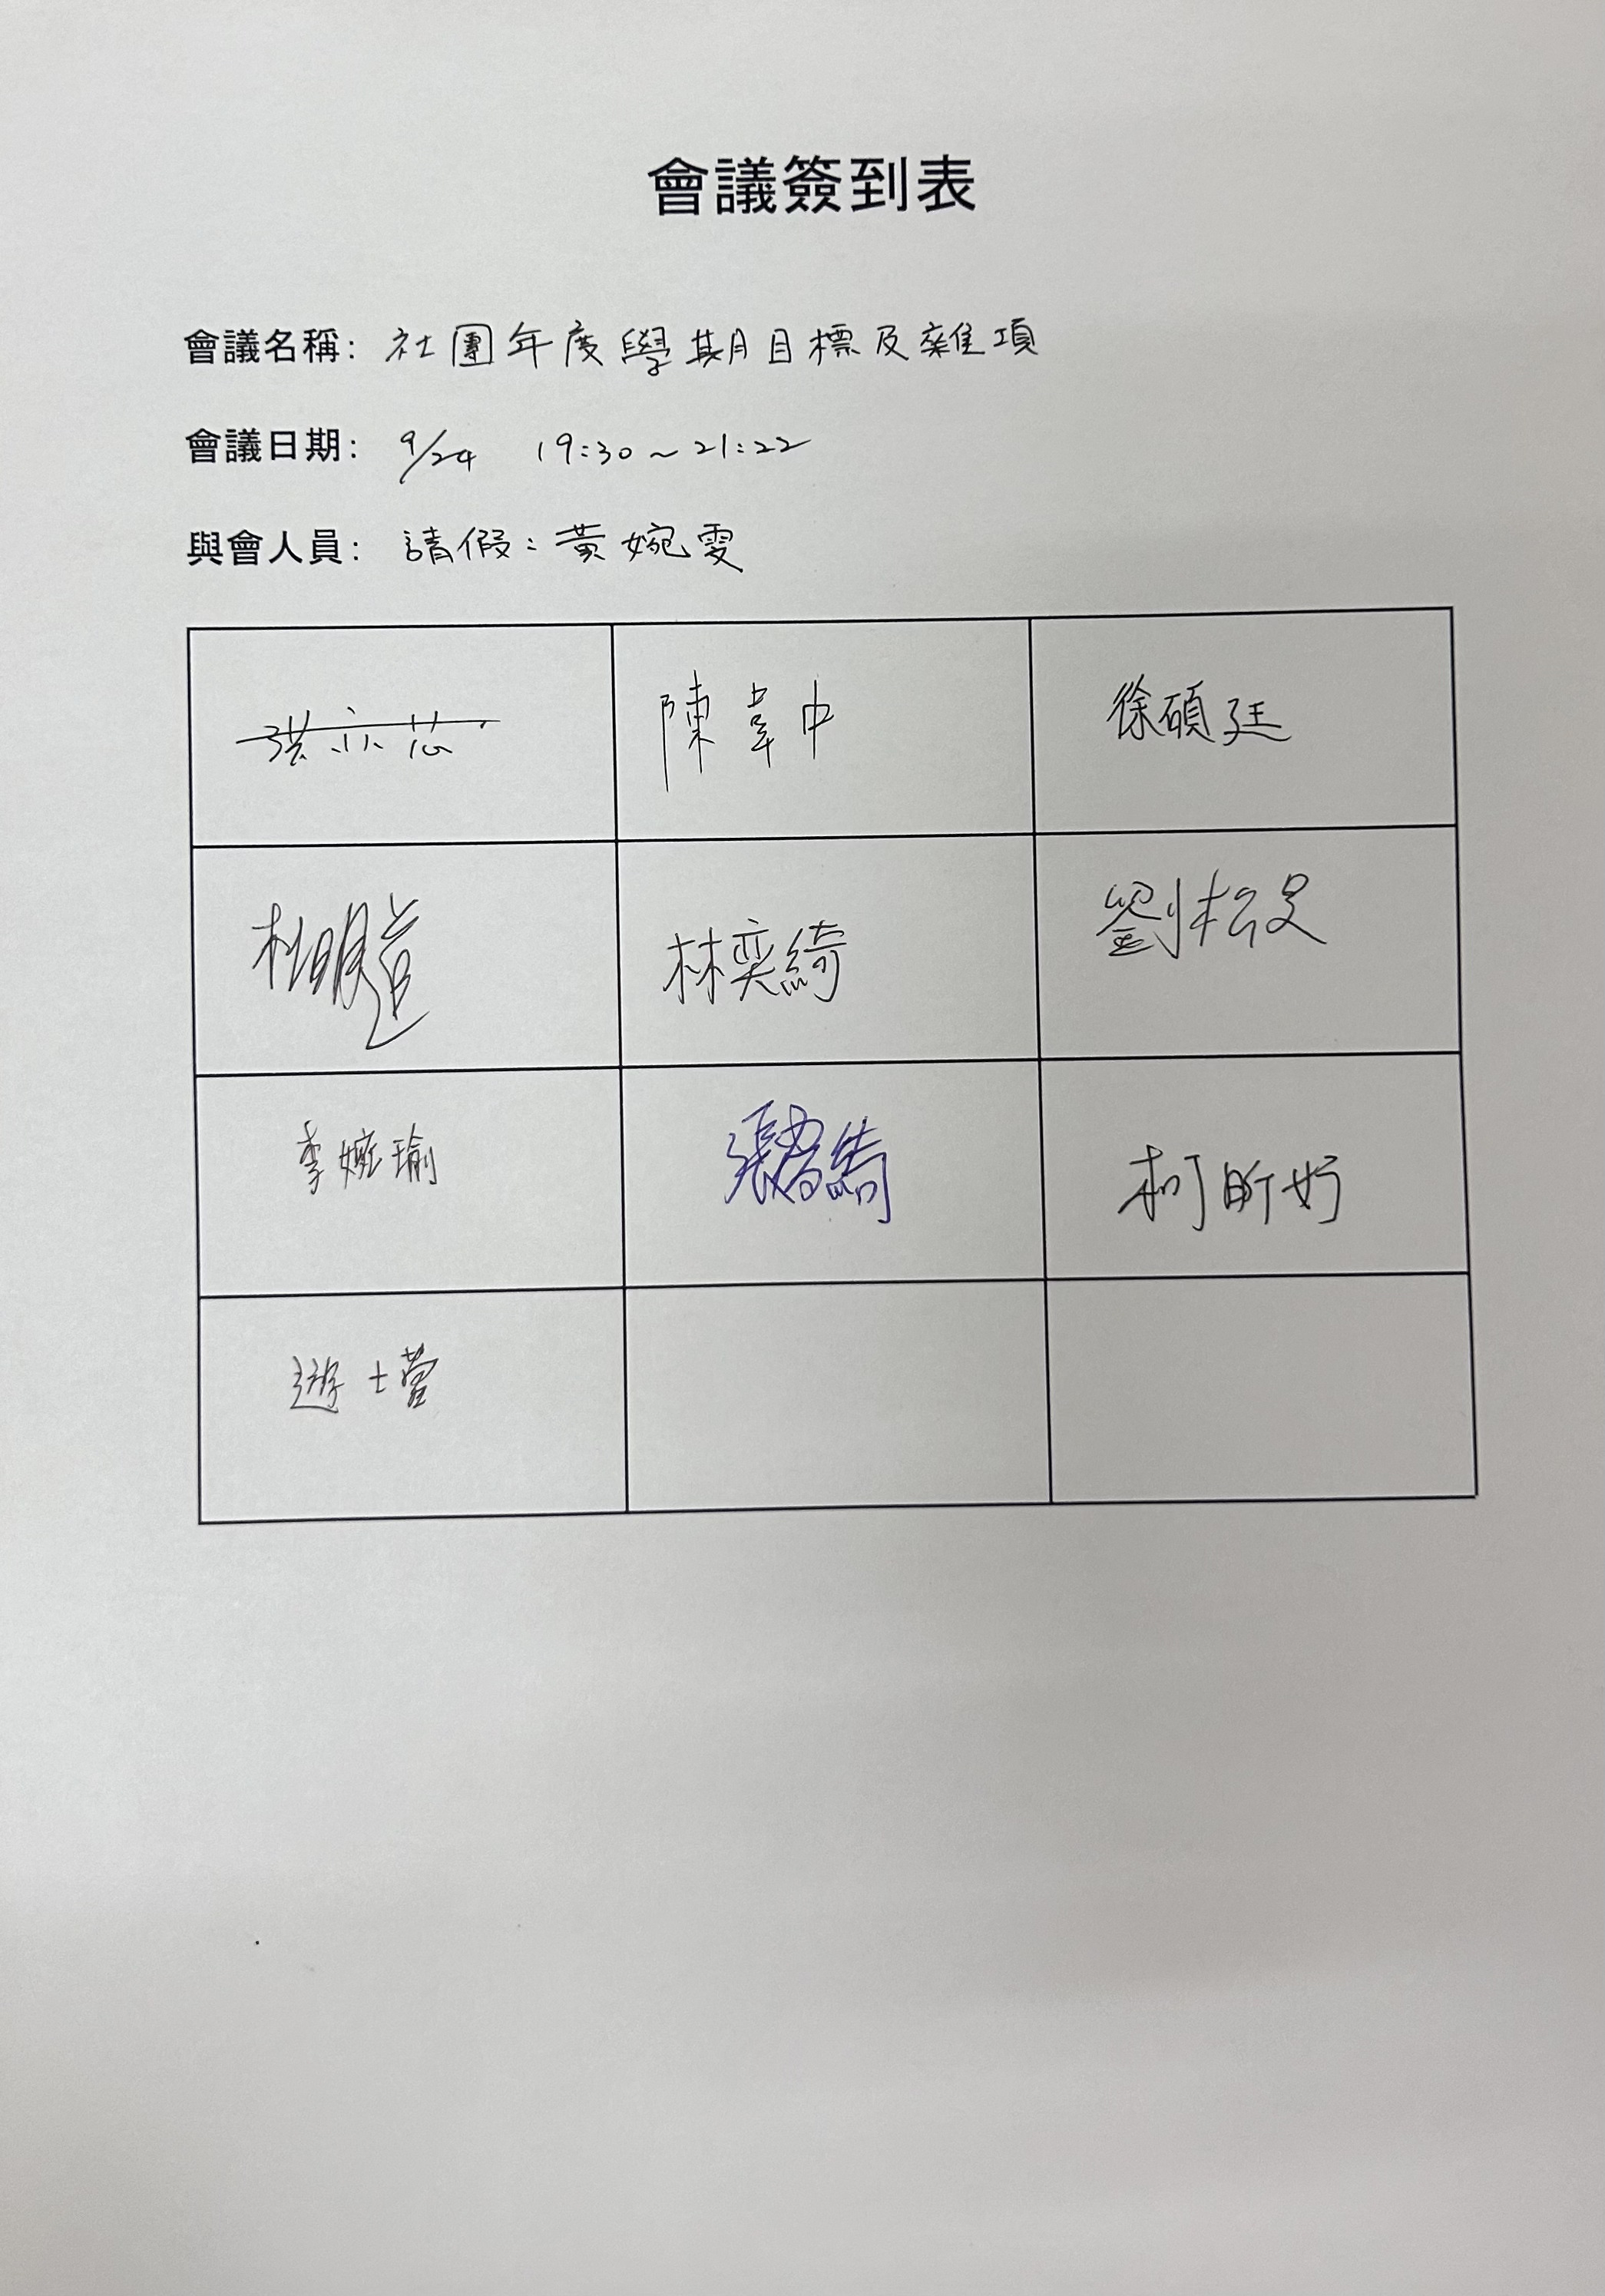 會議簽到表
會議名稱：社團年度學期目標及雜項
會議日期：9/24 19:30~21:22
與會人員：請假：黃婉雯
洪亦芯 陳韋中 徐碩廷
杜明 林奕綺 劉松
李婉瑜 張 綺 柯昕妤
游士萱